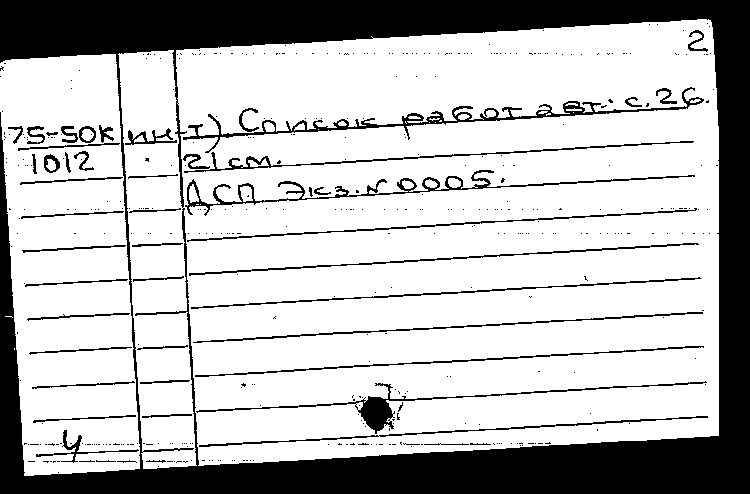 2
75-50К ин-т). Список работ авт.: с. 26.
1012 21 см.
ДСП Экз. N 0005.
4